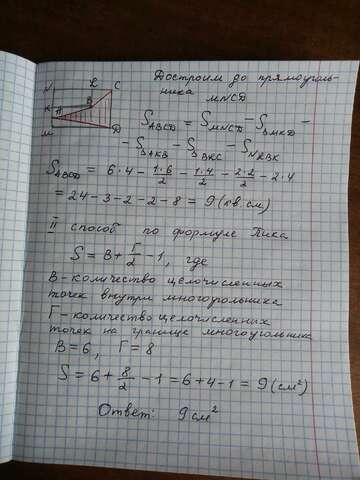 N L C
K A B
M D
Достроим до прямоуголь-
ника MNCD
S ABCD = S MNCD - S △MKD -
- S △AKB - S △BKC - S NKBK
S ABCD = 6·4 - 1·6/2 - 1·4/2 - 2·2/2 - 2·4
= 24-3-2-2-8 = 9 (кв.см)
II способ по формуле Пика
S = В + Г/2 - 1, где
В - количество целочисленных
точек внутри многоугольника
Г - количество целочисленных
точек на границе многоугольника
В = 6, Г = 8
S = 6 + 8/2 - 1 = 6+4-1 = 9 (см²)
Ответ: 9 см²